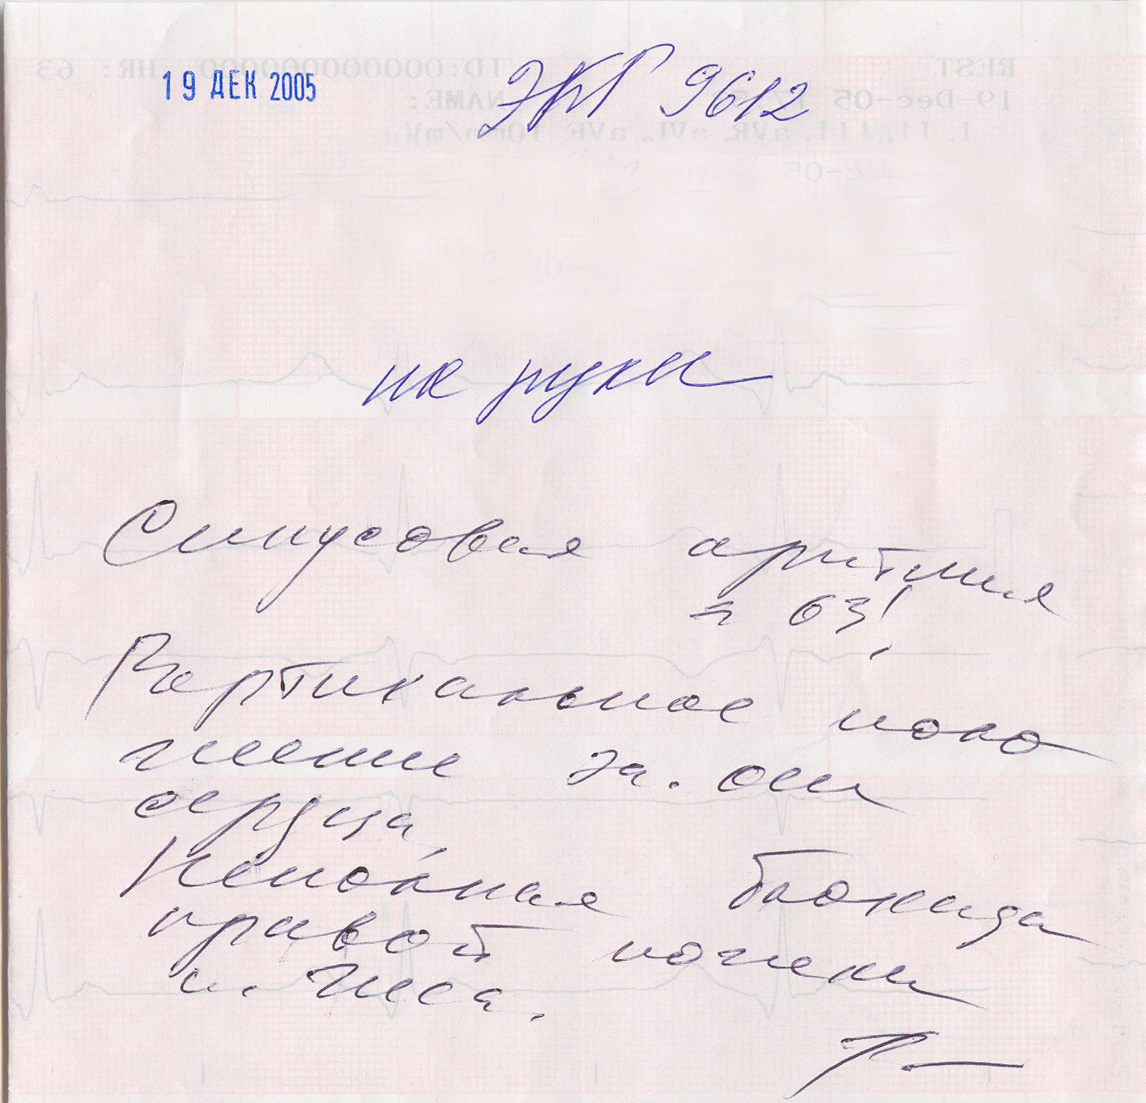 19 ДЕК 2005 ЭКГ 9612
REST ID:0000000000000 HR: 63
19-Dec-05 NAME:
I, II, III, aVR, aVL, aVF 10mm/mV
-05
на руки
Синусовая аритмия
= 63!
Вертикальное поло
жение эл. оси
сердца,
Неполная блокада
правой ножки
п. Гиса.